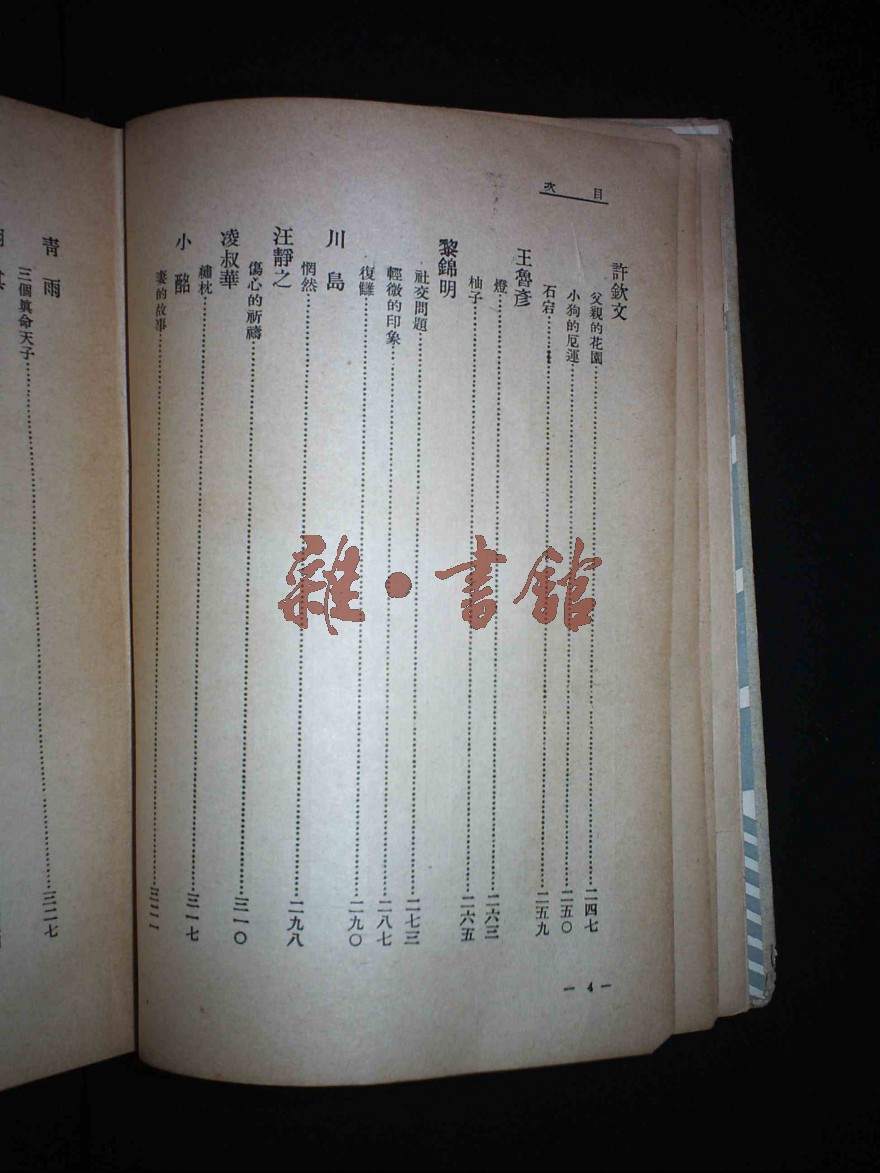 目次
許欽文
父親的花園⋯⋯二四七
小狗的厄運⋯⋯二五〇
石宕⋯⋯二五九
王魯彥
燈⋯⋯二六三
柚子⋯⋯二六五
黎錦明
社交問題⋯⋯二七三
輕微的印象⋯⋯二八七
復讎⋯⋯二九〇
川島
惘然⋯⋯二九八
汪靜之
傷心的祈禱⋯⋯三一〇
凌叔華
繡枕⋯⋯三一七
小酩
妻的故事⋯⋯三二一
— 4 —
青雨
三個眞命天子⋯⋯三二七
雜·書館